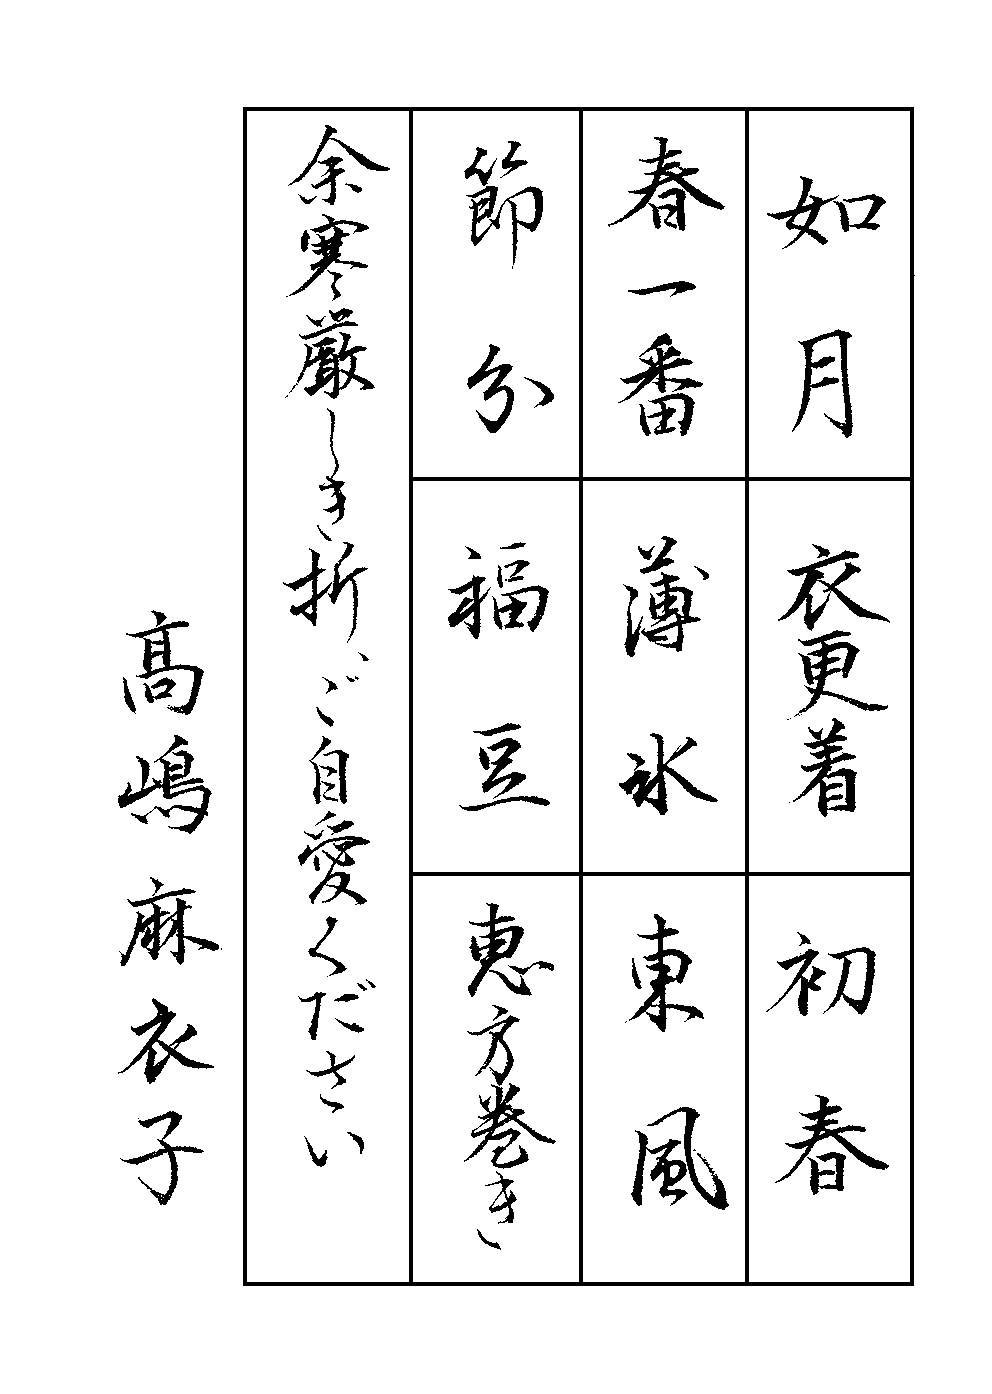 如月
衣更着
初春
春一番
薄氷
東風
節分
福豆
恵方巻き
余寒厳しき折、ご自愛ください
髙嶋麻衣子